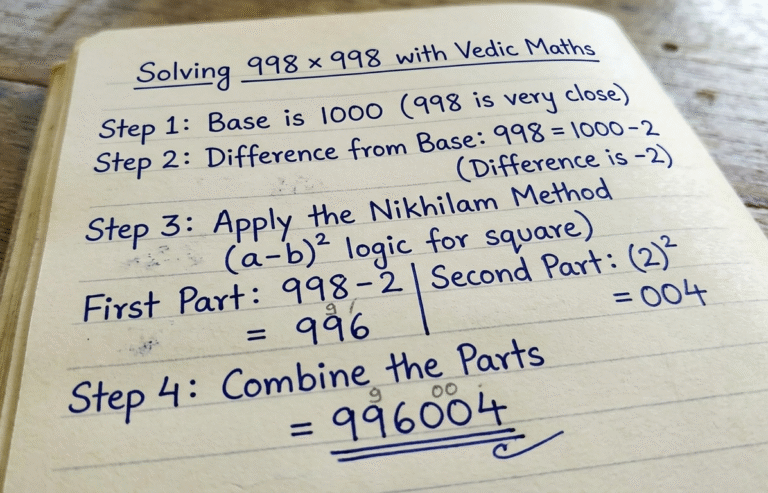 Solving 998 × 998 with Vedic Maths
Step 1: Base is 1000 (998 is very close)
Step 2: Difference from Base: 998 = 1000-2
(Difference is -2)
Step 3: Apply the Nikhilam Method
(a-b)² logic for square)
First Part: 998-2 | Second Part: (2)²
= 996 = 004
Step 4: Combine the Parts
= 996004